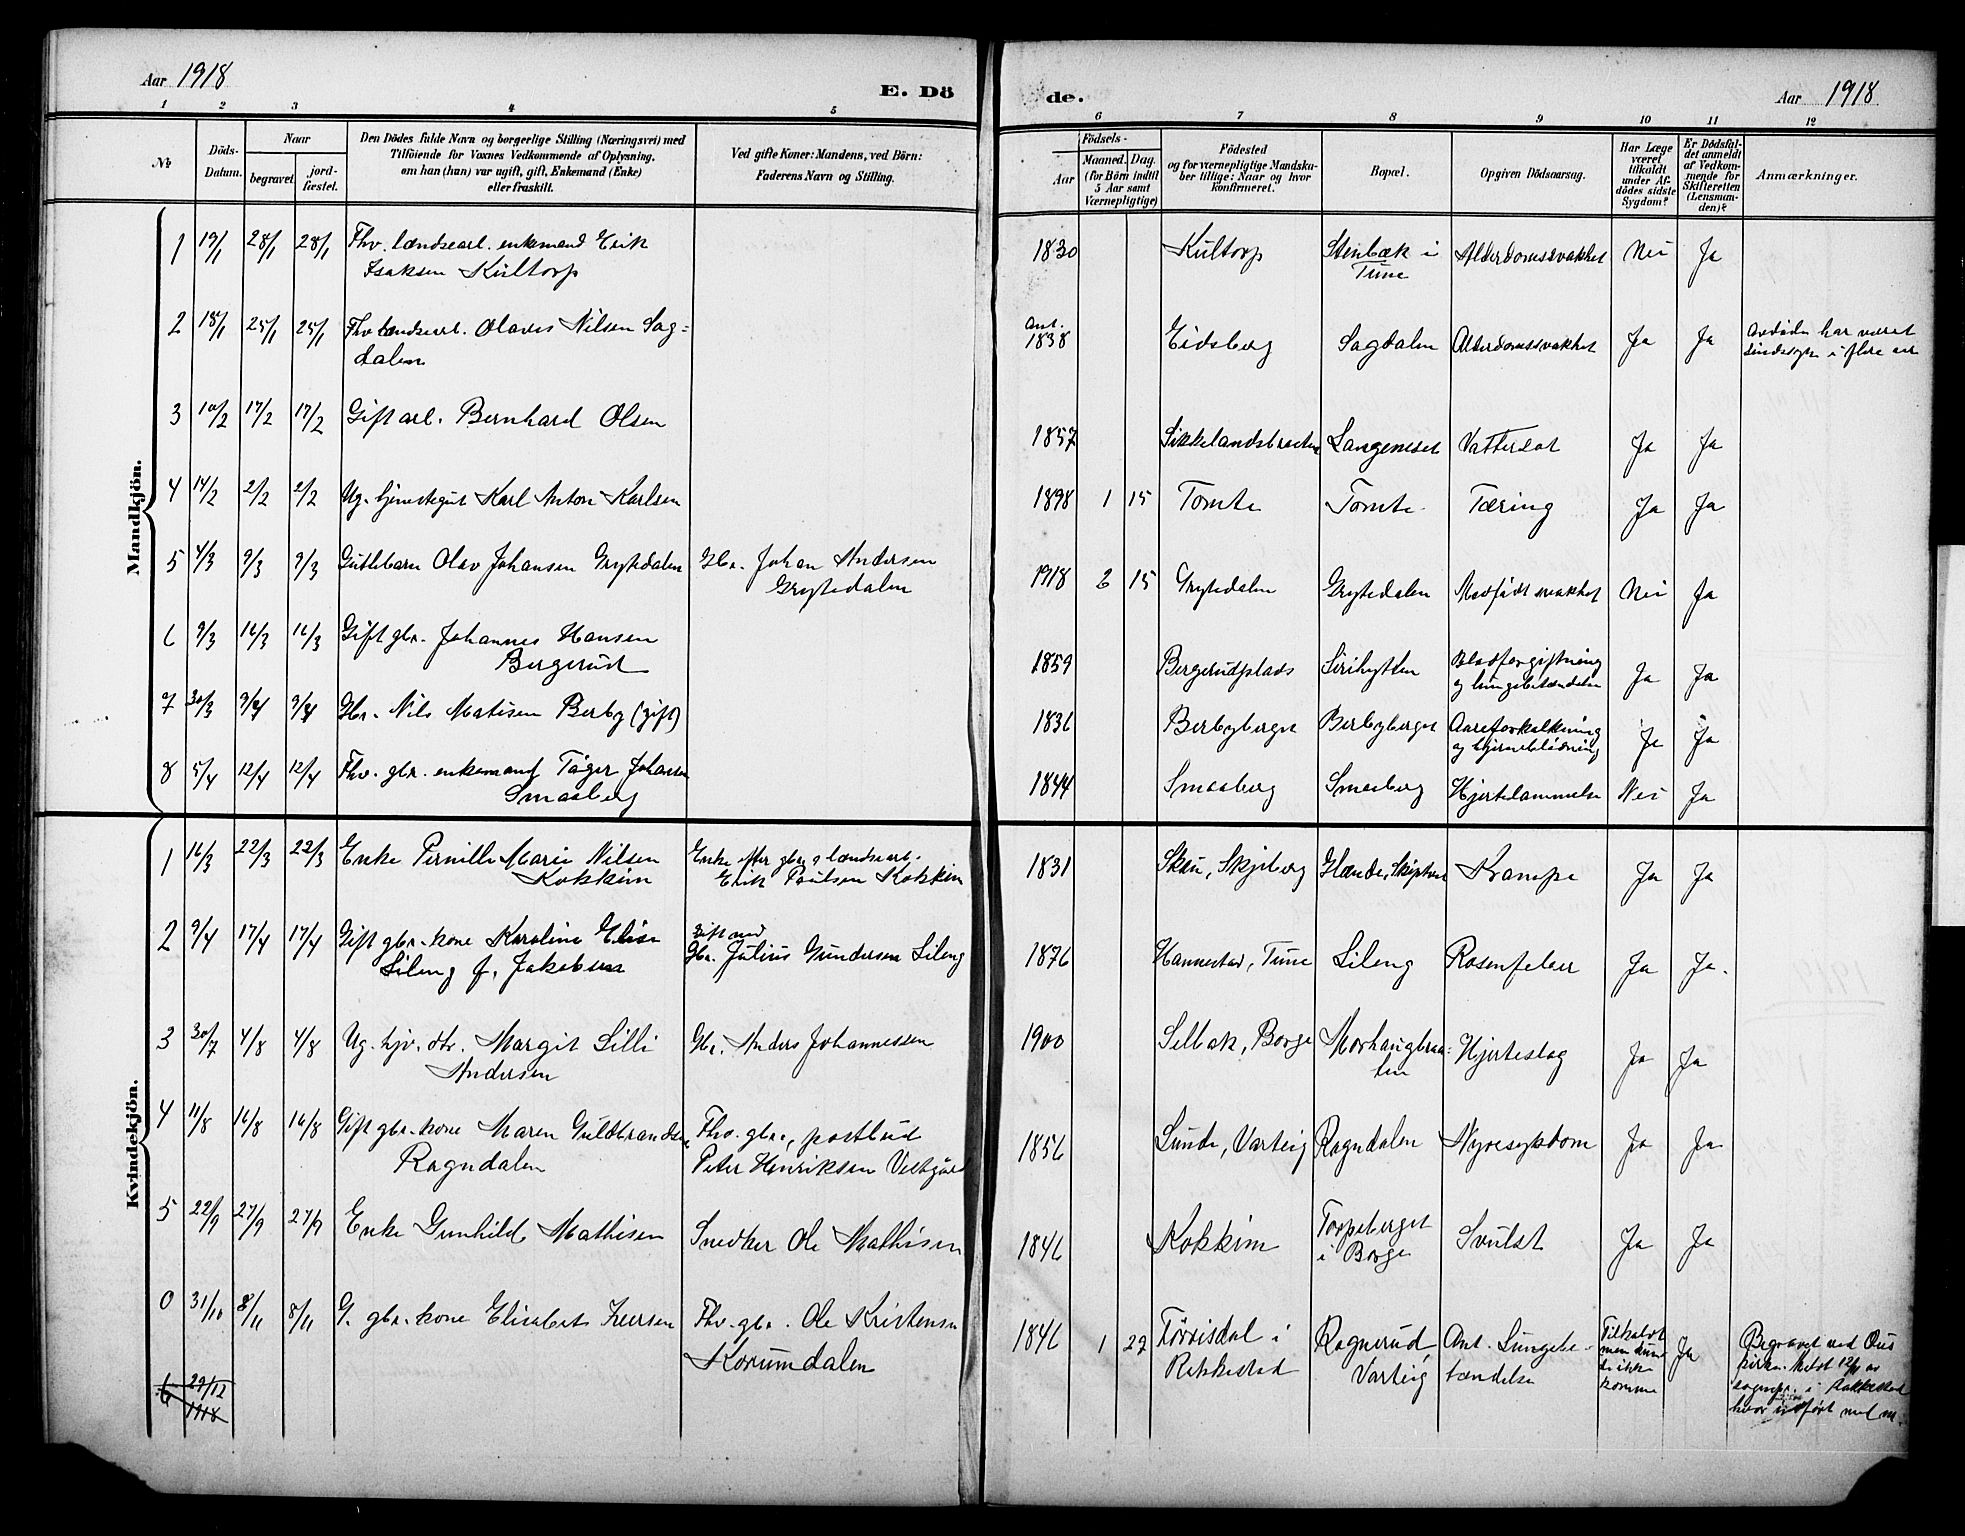 Aar 1918
E. Dö
de.
Aar 1918
1 2 3 4 5 6 7 8 9 10 11 12
No
Döds-
Datum.
Naar
begravet.
jord-
fæstet.
Den Dödes fulde Navn og borgerlige Stilling (Næringsvei) med
Tilföiende for Voxnes Vedkommende af Oplysning.
om han (hun) var ugift, gift, Enkemand (Enke)
eller fraskilt.
Ved gifte Koner: Mandens, ved Börn:
Faderens Navn og Stilling.
Födsels-
Aar
Maaned.
Dag.
(for Börn indtil
5 Aar samt
Værnepligtige)
Födested
og for værnepligtige Mandska-
ber tillige: Naar og hvor
konfirmeret.
Bopæl.
Opgiven Dödsaarsag.
Har Læge
været
tilkaldt
under Af-
dödes sidste
Sygdom?
Er Dödsfal-
det anmeldt
af Vedkom-
mende for
Skifteretten
(Lensman-
den)?
Anmærkninger.
Mandkjön.
1 19/1 28/1 28/1 Fhv. landsearb. enkemand Erik
Isaksen Kultorp
1830 Kultorp Stenbæk i
Tune
Alderdomssvakhet Nei Ja
2 18/1 25/1 25/1 Fhv landsearb. Olaves Nilsen Sag=
dalen
Ant.
1838 Eidsberg Sagdalen Alderdomssvakhet Ja Ja
Avdøde har været
sindssyk i flere aar
3 10/2 17/2 17/2 Gift arb. Bernhard Olsen
1857 Sikkelandsbraaten Langeneset Vattersot Ja Ja
4 14/2 2/2 2/2 Ug. tjenestegut Karl Anton Karlsen
1898 1 15 Tomte Tomte Tæring Ja Ja
5 4/3 9/3 9/3 Guttebarn Olav Johansen Grytedalen Gbr. Johan Andersen
Grytedalen
1918 2 15 Grytedalen Grytedalen Medfødt svakhet Nei Ja
6 9/3 16/3 16/3 Gift gbr. Johannes Hansen
Bergerud
1859 Bergerudplads Sirihytten Blodforgiftning
og lungebetændelse Ja Ja
7 30/3 9/4 9/4 Gbr. Nils Matisen Berby (gift)
1836 Berbyberget Berbyberget Aareforkalkning
og hjerneblødning Ja Ja
8 5/4 12/4 12/4 Fhv. gbr. enkemand Tøger Johansen
Smaaberg
1844 Smaaberg Smaaberg Hjertelammelse Nei Ja
Kvindekjön.
1 16/3 22/3 22/3 Enke Pernille Marie Nilsen
Kokkim
Enke efter gbr. og landsearb.
Erik Paulsen Kokkim
1831 Skau, Skjeberg Glende, Skiptvet Krampe Ja Ja
2 9/4 17/4 17/4 Gift gbr.-kone Karoline Elise
Lileng f. Jakobsen
Gift med
Gbr. Julius Gundersen Lileng
1876 Hannestad, Tune Lileng Rosenfeber Ja Ja.
3 30/7 4/8 4/8 Ug. hjv. dtr. Margit Lilli
Andersen
Gbr. Anders Johannessen
1900 Selbak, Borge Morhaugbraa=
ten
Hjerteslag Ja Ja
4 11/8 16/8 16/8 Gift gbr.-kone Maren Guldbrandsen
Ragndalen
Fhv. gbr., postbud
Peter Henriksen Vestgård
1856 Lunde, Varteig Ragndalen Nyresygdom Ja Ja
5 22/9 27/9 27/9 Enke Gunhild Mathisen Snedker Ole Mathisen
1846 Kokkim Torpeberget
i Borge
Svulst Ja Ja
0 31/10 8/11 8/11 G. gbr.-kone Elisabet Iversen Fhv. gbr. Ole Kristensen
Korumdalen
1846 1 27 Torrisdal i
Rakkestad
Ragnerud,
Varteig
Ant. Lungebe-
tændelse
Tilkaldt
men kun-
de ikke
komme
Ja
Begravet ved Øus
kirke. Meldt 12/11 av
sognepr. i Rakkestad
hvor indført med nr.
6 29/12
1918